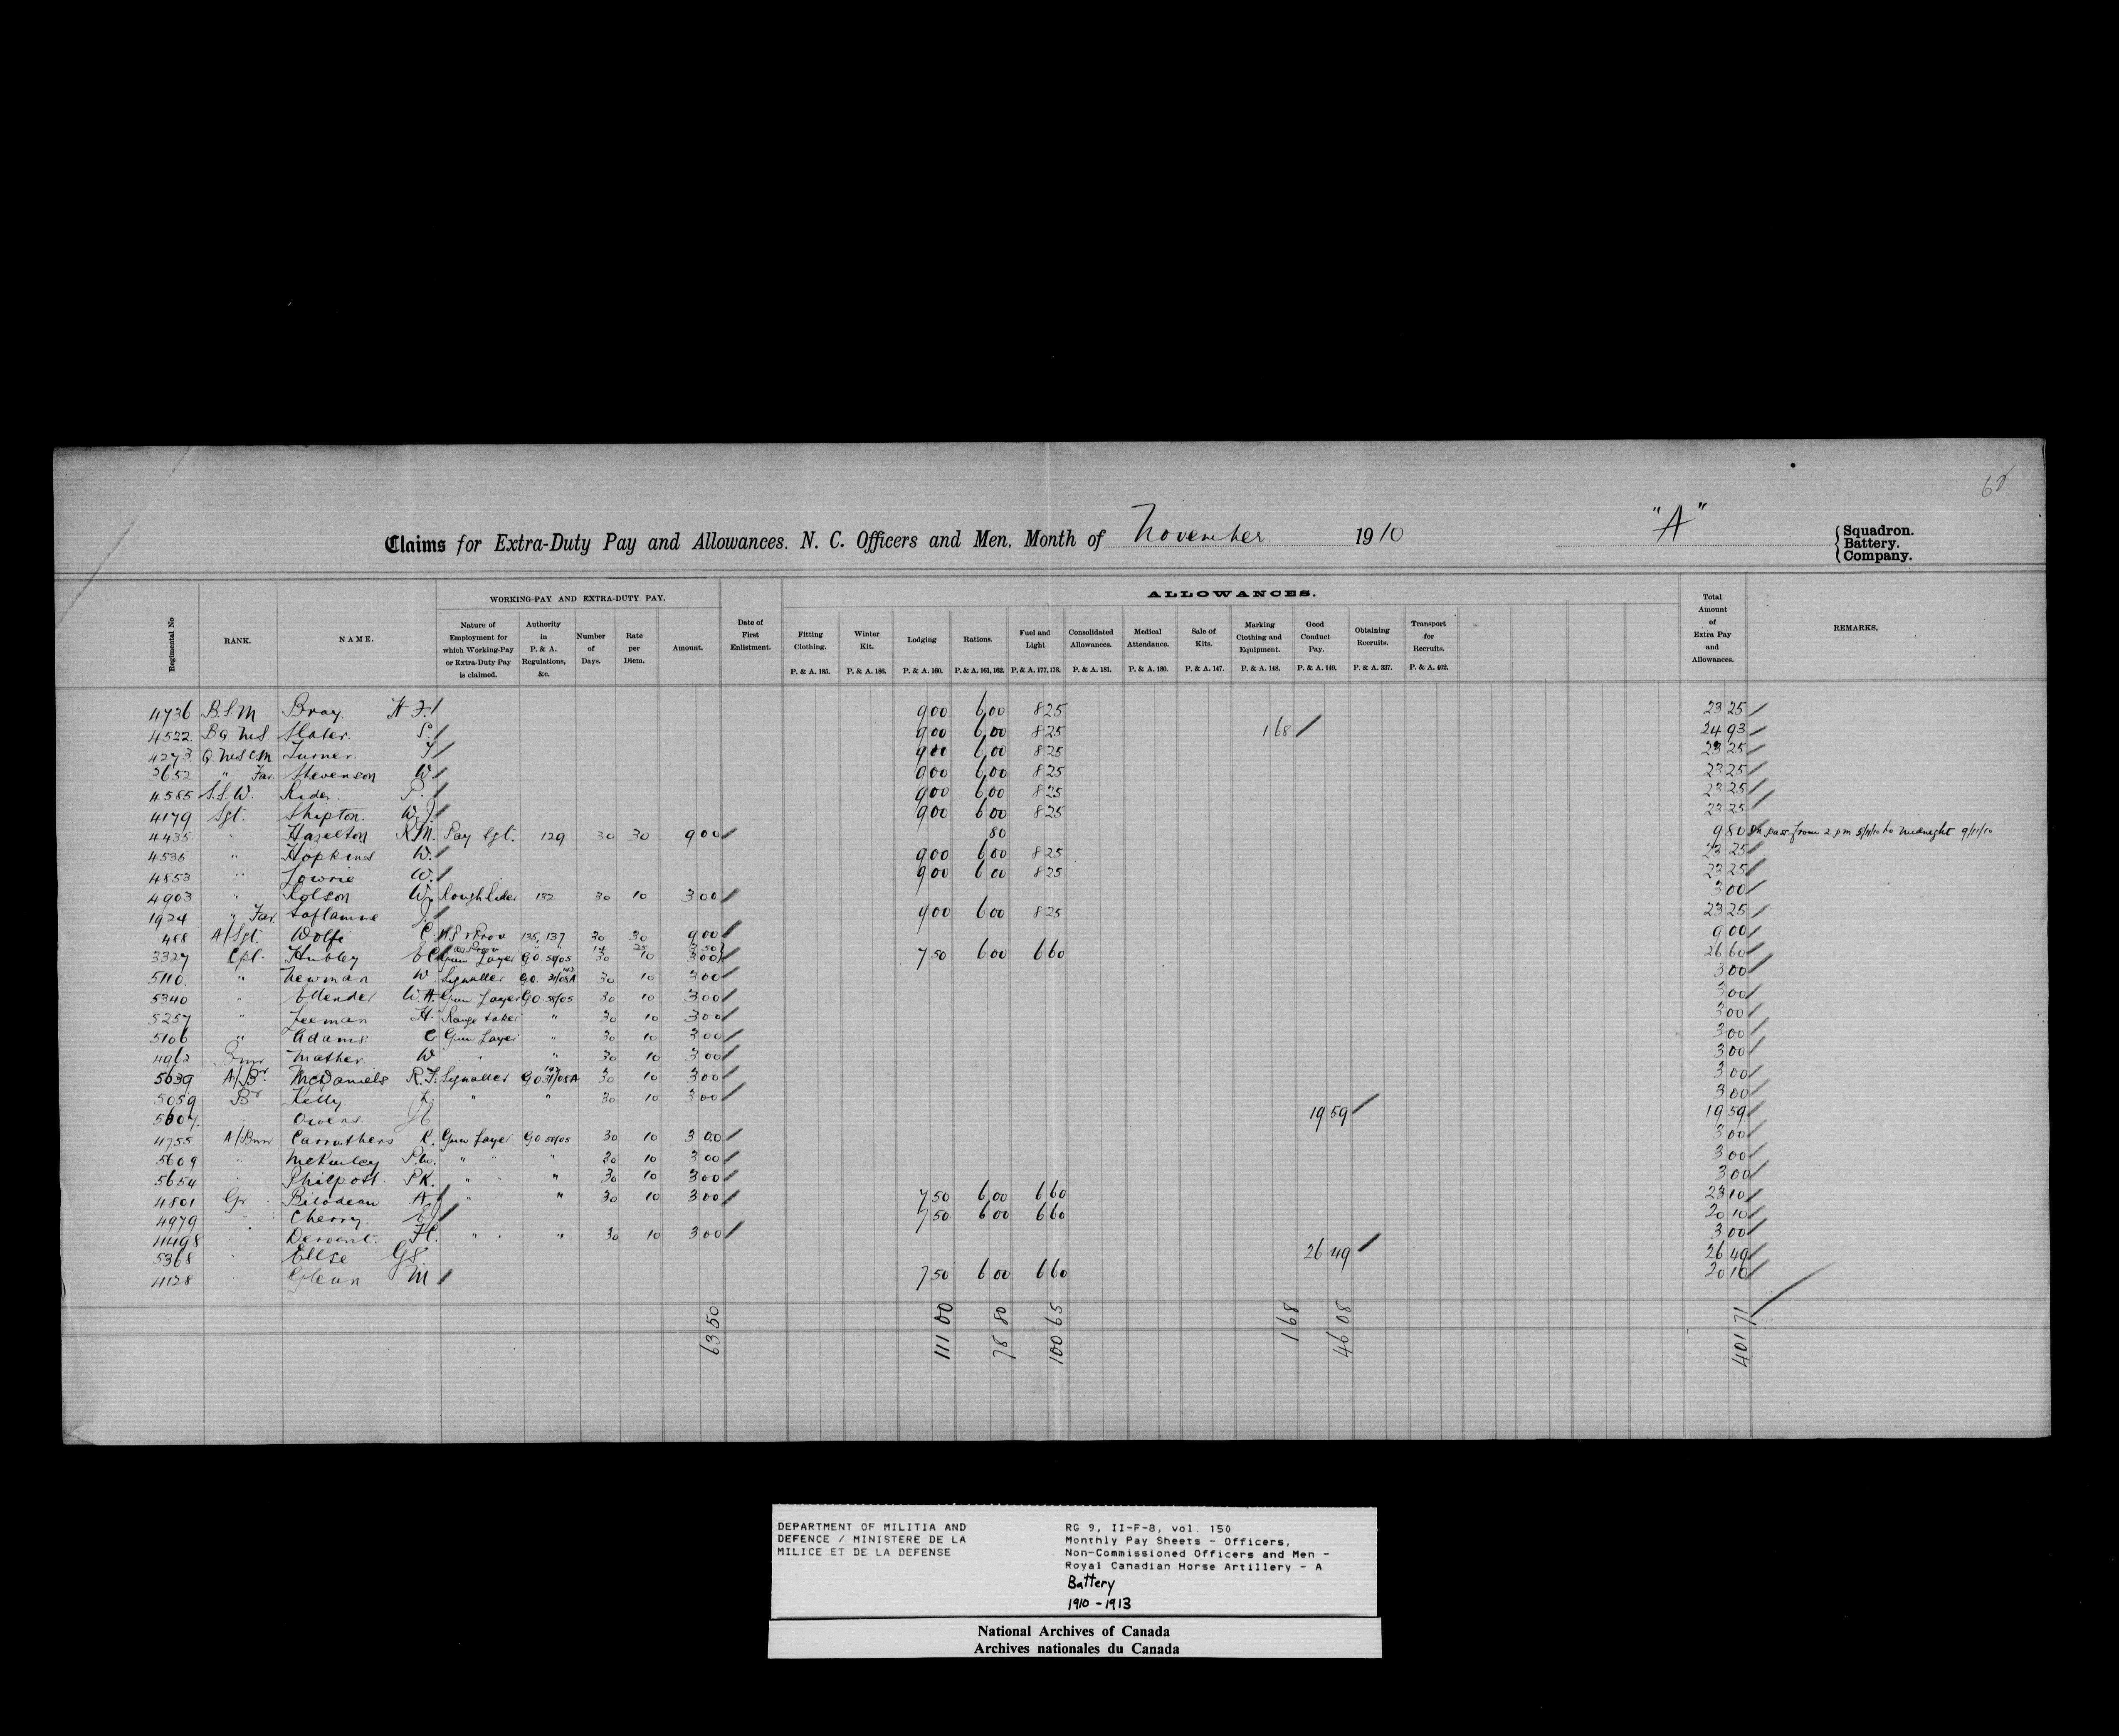 68
Claims for Extra-Duty Pay and Allowances. N. C. Officers and Men. Month of November 1910 "A" { Squadron. Battery. Company.
WORKING-PAY AND EXTRA-DUTY PAY. ALLOWANCES.
Regimental No RANK. NAME. Nature of Employment for which Working-Pay or Extra-Duty Pay is claimed. Authority in P. & A. Regulations, &c. Number of Days. Rate per Diem. Amount. Date of First Enlistment. Fitting Clothing. P. & A. 185. Winter Kit. P. & A. 186. Lodging P. & A. 160. Rations. P. & A. 161, 162. Fuel and Light P. & A. 177, 178. Consolidated Allowances. P. & A. 181. Medical Attendance. P. & A. 180. Sale of Kits. P. & A. 147. Marking Clothing and Equipment. P. & A. 148. Good Conduct Pay. P. & A. 149. Obtaining Recruits. P. & A. 337. Transport for Recruits. P. & A. 402. Total Amount of Extra Pay and Allowances. REMARKS.
4736 B.S.M Bray. H F. 9 00 6 00 8 25 23 25
4522 B Q M S. Slater. S. 9 00 6 00 8 25 1 68 24 93
4273 Q. M S C.M Turner. J 9 00 6 00 8 25 23 25
3652 " Far. Stevenson W 9 00 6 00 8 25 23 25
4585 S.S.W. Rider. P. 9 00 6 00 8 25 23 25
4179 Sgt. Shipton. W.J. 9 00 6 00 8 25 23 25
4435 " Hazelton R.M. Pay Sgt. 129 30 30 9 00 80 9 80 On pass from 2 p.m 5/11/10 to midnight 9/11/10
4535 " Hopkins W. 9 00 6 00 8 25 23 25
4853 " Lowrie W. 9 00 6 00 8 25 23 25
4903 " Rolson W. Rough Rider 132 30 10 3 00 3 00
1924 " Far. Laflamme J. 9 00 6 00 8 25 23 25
488 A/Sgt. Wolfe C. 136, 137 30 30 9 00 9 00
14 25 3 50
3327 Cpl. Hubley E C Gun Layer G O 58/05 30 10 3 00 7 50 6 00 6 60 26 60
5110 " Newman W. Signaller G.O. 30 10 3 00 3 00
5340 " Ellender W.H. Gun Layer G O 58/05 30 10 3 00 3 00
5257 " Freeman H. Range taker " 30 10 3 00 3 00
5106 " Adams C Gun Layer " 30 10 3 00 3 00
4962 Bmr Mather. W " " 30 10 3 00 3 00
5039 A/Br. McDaniels R.F. Signaller G O. 30 10 3 00 3 00
5059 Br Kelly. " " 30 10 3 00 3 00
5607. Owens 19 59 19 59
4755 A/Bmr Carruthers R. Gun Layer G O 58/05 30 10 3 00 3 00
5609 " McKinley P.W. " " " 30 10 3 00 3 00
5654 Philpott. P K. " " " 30 10 3 00 3 00
4801 Gr Bilodeau A. " " 30 10 3 00 7 50 6 00 6 60 23 10
4979 " Cherry. E 7 50 6 00 6 60 20 10
" Dervent. F C. " " " 30 10 3 00 3 00
5368 " Ellse G S. 26 49 26 49
4128 " Glenn M 7 50 6 00 6 60 20 10
63 50 111 00 78 80 100 65 1 68 46 08 401 71
DEPARTMENT OF MILITIA AND
DEFENCE / MINISTERE DE LA
MILICE ET DE LA DEFENSE
RG 9, II-F-8, vol. 150
Monthly Pay Sheets - Officers,
Non-Commissioned Officers and Men -
Royal Canadian Horse Artillery - A
Battery
1910 - 1913
National Archives of Canada
Archives nationales du Canada